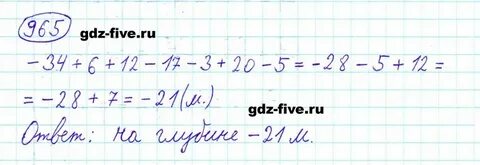 965
gdz-five.ru
-34+6+12-17-3+20-5=-28-5+12=
=-28+7=-21(м.)
gdz-five.ru
Ответ: на глубине -21 м.